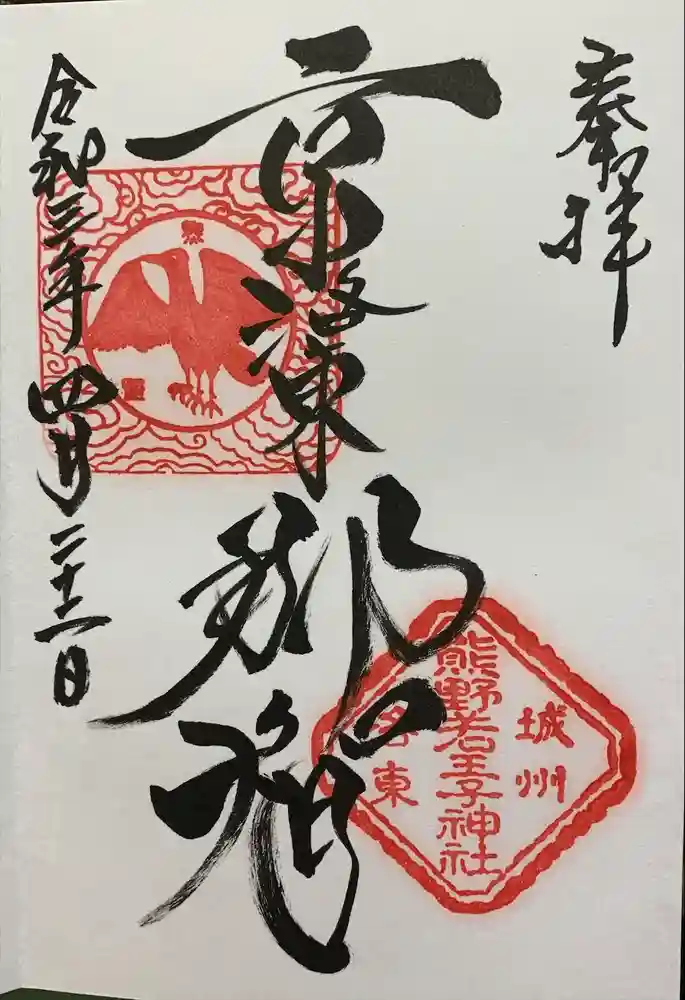 奉拝
京洛東
那智
令和三年四月二十二日
城州
熊野若王子神社
洛東